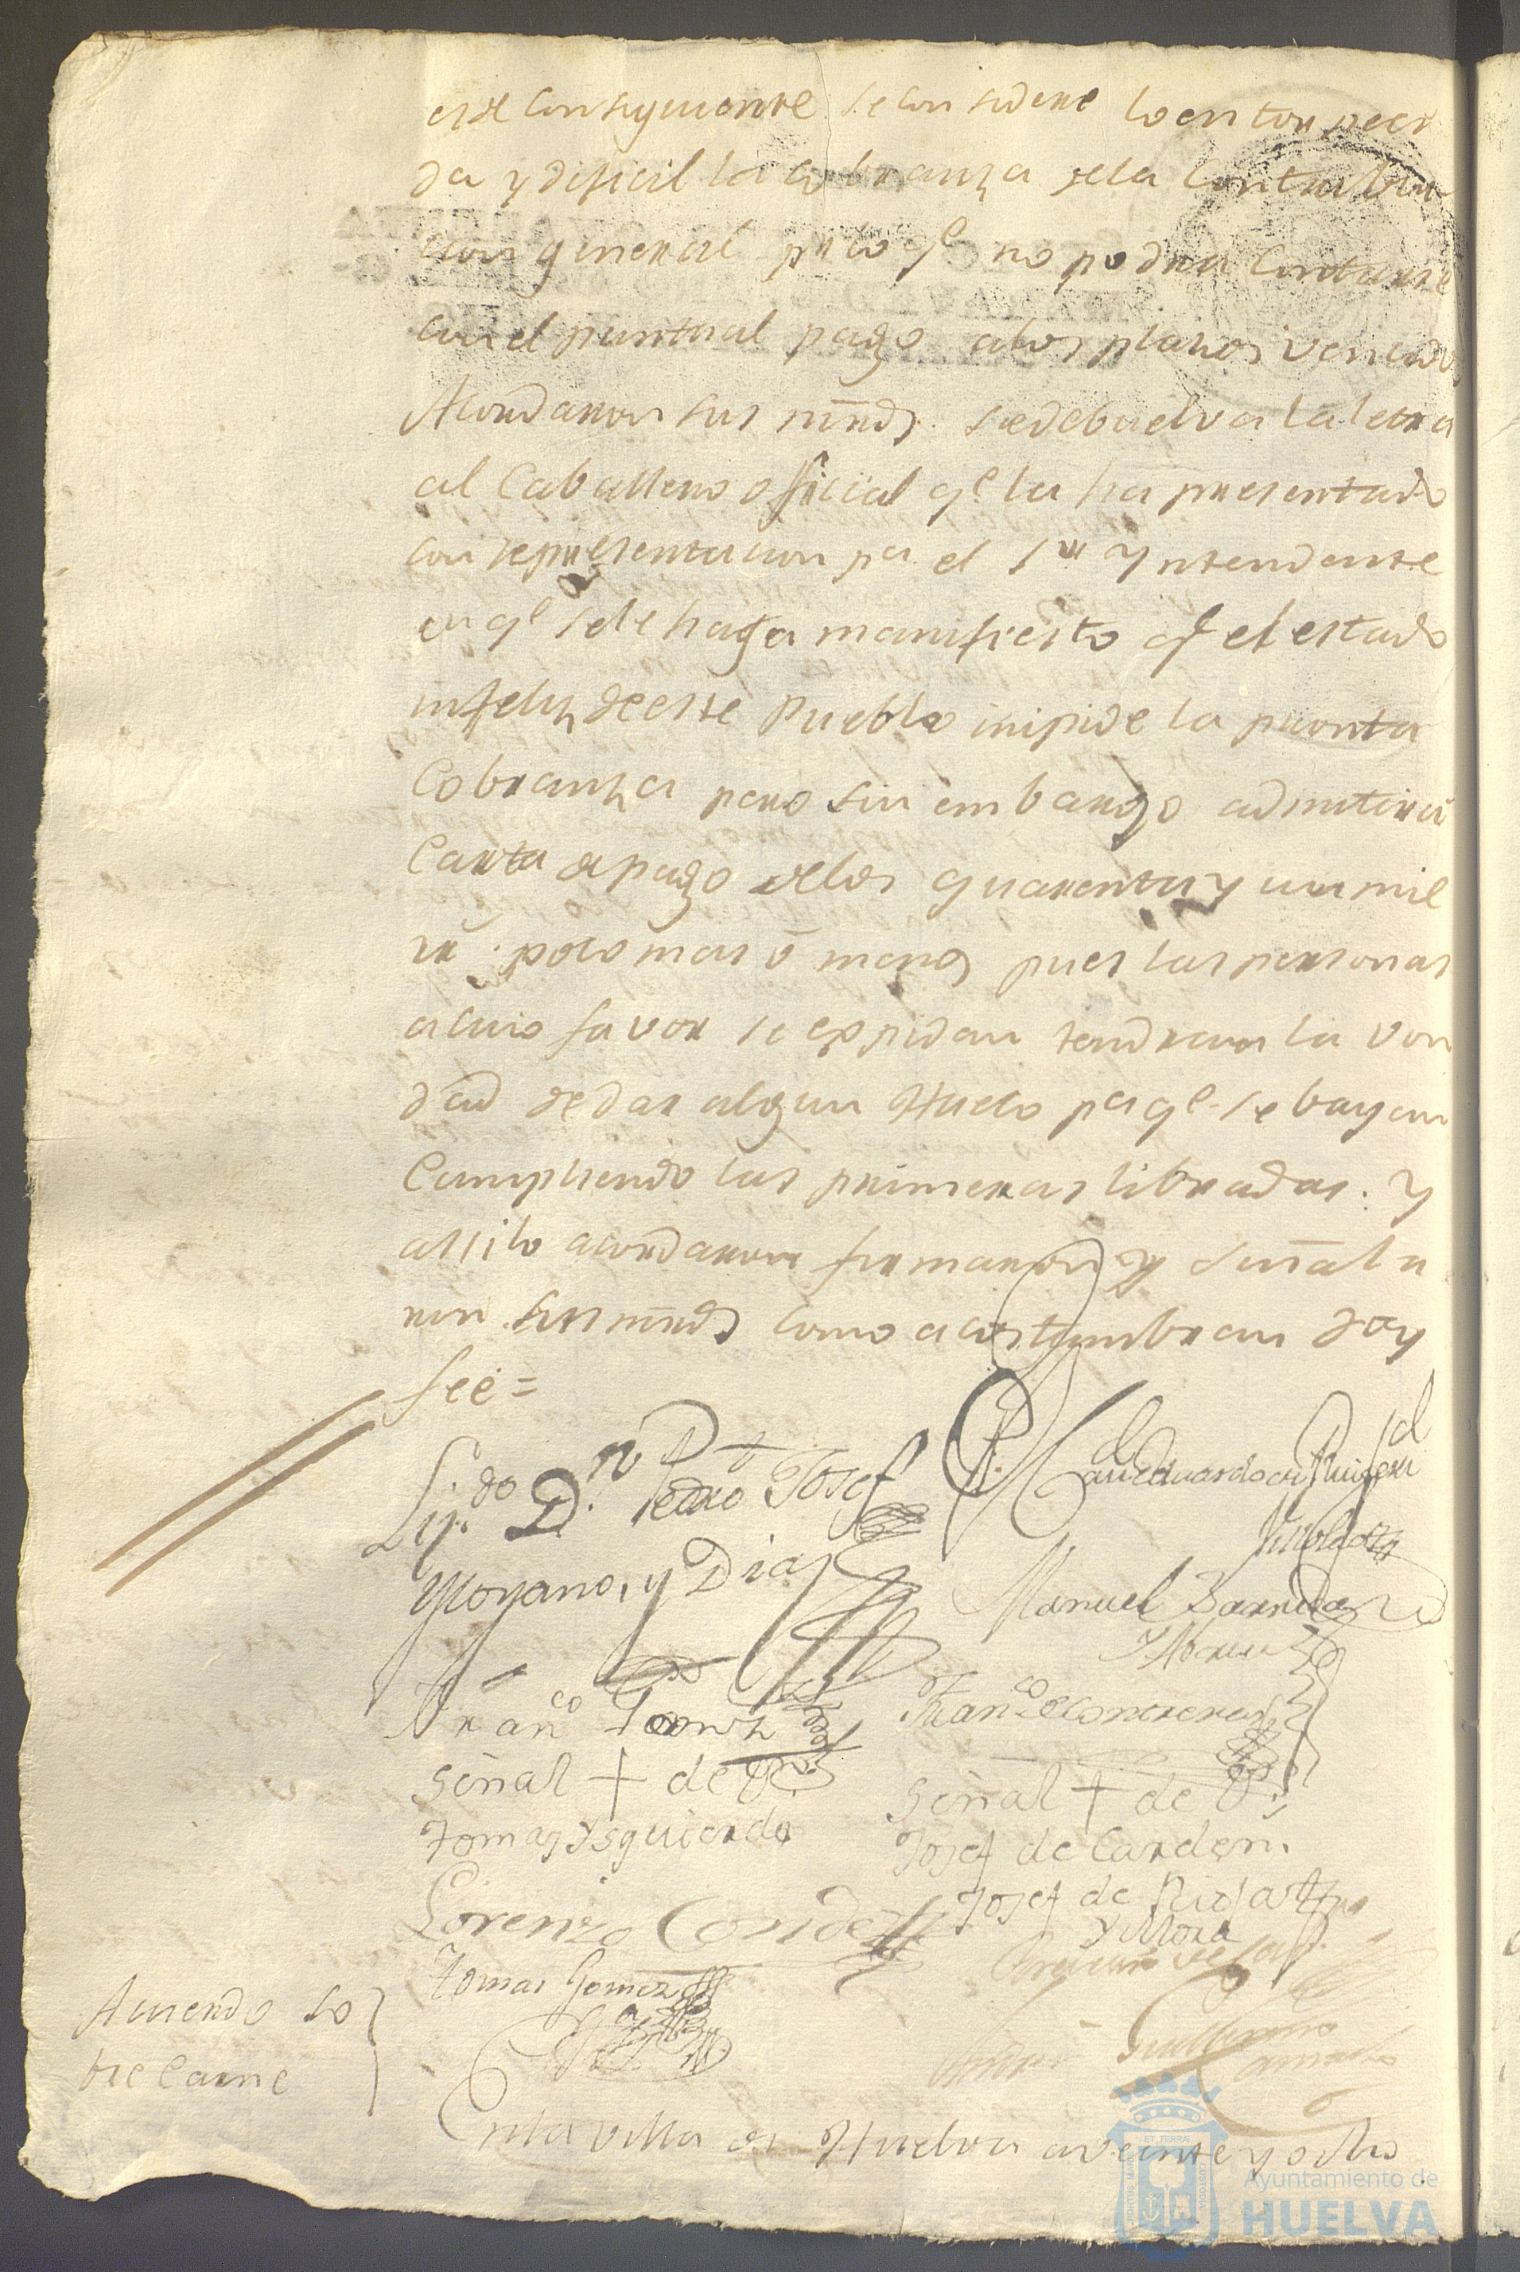 es de consiguiente se considere lo entorpeci
da y dificil la cobranza dela Contribu
cion general pr lo qe no podra Contarse
con el puntual pago alos plazos vencidos
Acordaron sus mrds. sedebuelva la letra
al Caballero oficial qe la ha presentado
con representacion pa el Sor Yntendente
en qe sele haga manifiesto qe el estado
infeliz deeste Pueblo impide la pronta
Cobranza pero sin embargo admitira
Carta depago delos quarenta y un mil
rs. poco mas ó menos pues las personas
acuio favor se expidan tendran la von
dad de dar algun Hueco pa qe se bayan
Cumpliendo las primeras libradas. Y
assi lo acordaron firmaron y señala
ron sus mrds como acostumbran doy
fee =
Liz.do D.n Pedro Josef
Moyano, y Diaz
Manuel Barreda
Y Abreu
Franco Gomez
Franco de Contreras
Señal + de
Tomas Ysquierdo
Señal + de
Josef de Carden.
Lorenzo Conde
Josef de
Y Mora
Tomas Gomez
Guillermo
Camacho
Acuerdo so
bre Carne
Enla villa de Huelva aveinte y ocho
Ayuntamiento de
HUELVA